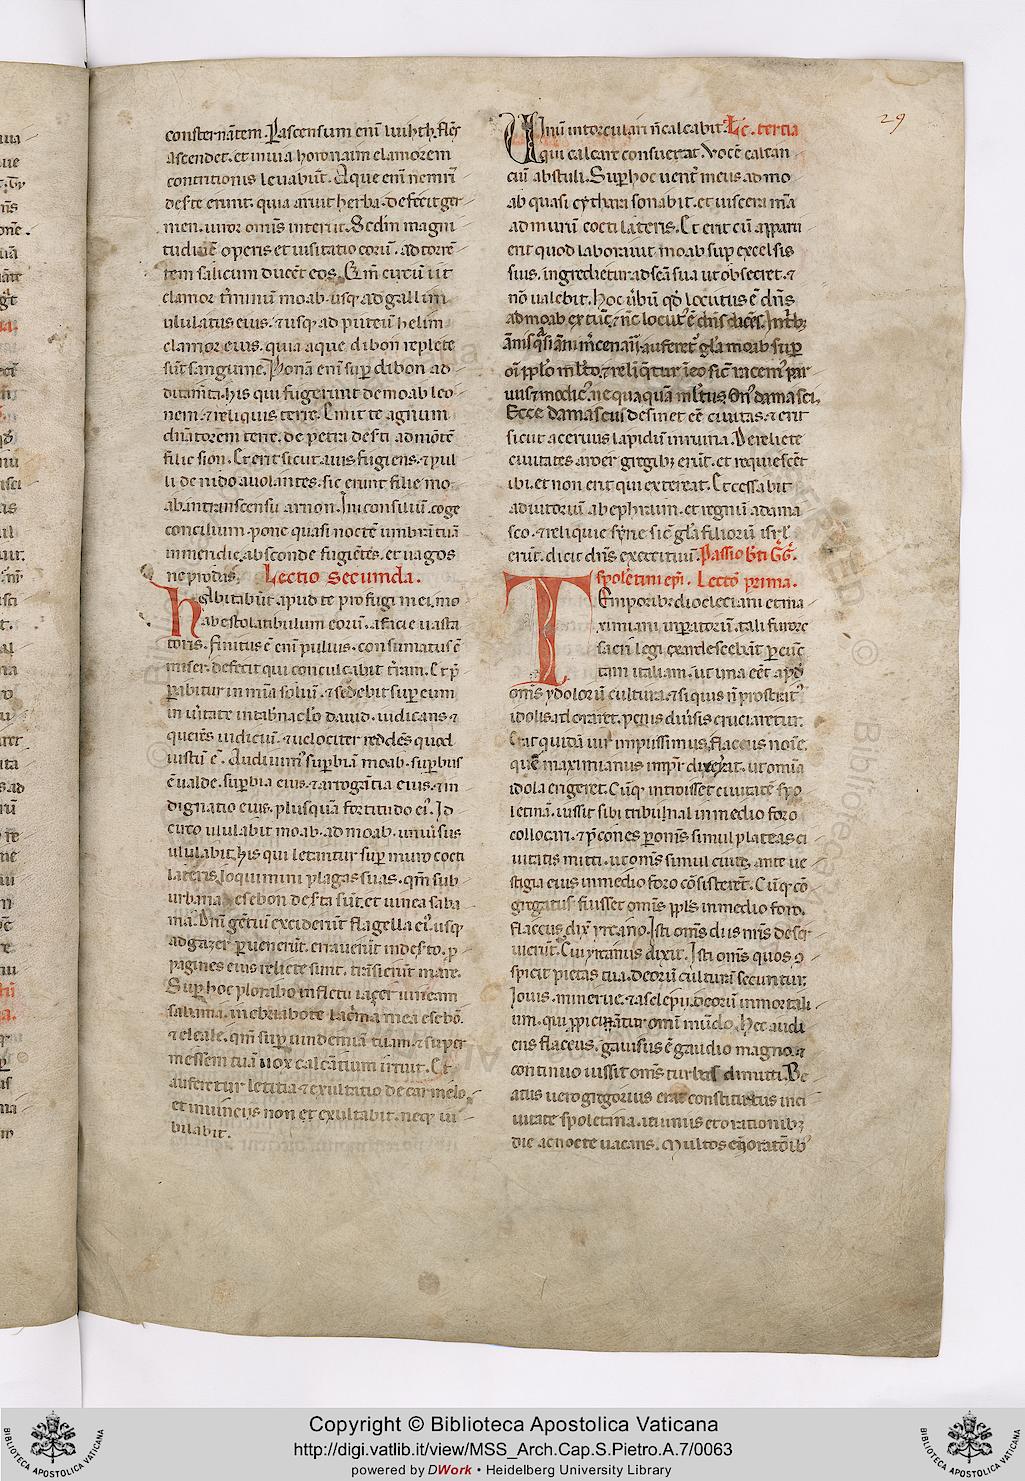 29
consternatem. P ascensum eni luith. flēs
ascendet. et in via horonaim clamorem
contritionis levabūt. Aque enī nemrī
des'te erunt. quia aruit herba. defecit ger
men. viror omīs interiit. Sc̄din magni
tudinē operis et visitatio eorū. ad torrē
tem salicum ducēt eos. Qm̄ cūcū iit
clamor t̄minū moab. usq̨ ad gallim
ululatus eius. ⁊ usq̨ ad puteū helim
clamor eius. quia aque dibon replete
sūt sanguine. Ponā enī sup̄ dibon ad
ditam̄ta. his qui fugerint de moab leo
nem. ⁊ reliquiis terre. Emitte agnum
dn̄atorem terre. de petra des'ti ad mōtē
filie sion. Et erit sicut. avis fugiens. ⁊ pul
li de nido avolantes. sic erunt filie mo
ab. in transcensu arnon. Ini consiliū. coge
concilium. pone quasi noctē umbrā tuā
in meridie. absconde fugiētes. et vagos
ne prodas. Lectio secunda.
Habitabūt apud te profugi mei. mo
ab esto latibulum eorū. a facie vasta
toris. Finitus ē enī pulvis. consumatus ē
miser. defecit qui conculcabit t̄ram. Et p̄
pabitur in mīa soliū. ⁊ sedebit sup̄ eum
in v̄itate in tab̄nac̄lo david. iudicans ⁊
querēs iudiciū. ⁊ velociter reddēs quod
iustū ē. Audivim' superbiā moab. supbus
ē valde. sup̄bia eius. ⁊ arrogātia eius. ⁊ in
dignatio eius. plusquā fortitudo ei'. Id
circo ululabit moab. ad moab. univ̄sus
ululabit. his qui letantur sup̄ muro cocti
lateris. loquimini plagas suas. qm̄ sub
urbana esebon des'ta sūt. et vinea saba
ma. Dn̄i gētiū exciderūt flagella ei'. usq̨
ad gazer p̄venerūt. erraverūt in des'to. p̄
pagines eius relicte sunt. trāsierūt mare.
Sup̄ hoc plorabo in fletu iazer vineam
sabama. inebriabo te lac̄ma mea esebō.
⁊ eleale. qm̄ sup̄ vindemiā tuam. ⁊ super
messem tuā vox calcātium irruit. Et
auferetur letitia ⁊ exultatio de carmelo.
et in vineis non et exultabit. neq̨ iu
bilabit.
Vinū in torculari n̄ calcabit. Lc̄. tertia
qui calcare consuerat. vocē calcan
ciū abstuli. Sup̄ hoc vent̄ meus ad mo
ab quasi cythara sonabit. et viscera m̄a
ad murū cocti lateris. Et erit cū apparu
erit quod laboravit moab sup̄ excelsis
suis. ingredietur ad sc̄a sua ut obsecret. ⁊
nō valebit. Hoc v̄bū qd̄ locutus ē dn̄s
ad moab ex tūc. ⁊ nc̄ locut' ē dn̄s dicēs. In trib;
ānis q̄si ani m̄cenarii. auferet' gl̄a moab sup̄
oī pp̄lo ml̄to. ⁊ reliq̄tur in eo sic̄ racem' par
vus ⁊ modic'. nequaquā ml̄tus. On' damasci.
Ecce damascus desinet eē civitas. ⁊ erit
sicut acervus lapidū in ruina. Derelicte
civitates aroer gregib; erūt. et requiescēt
ibi. et non erit qui exterreat. Et cessabit
adiutoriū ab ephraim. et regnū a dama
sco. ⁊ reliquie syrie sic̄ gl̄a filiorū isr̄l
erūt. dicit dn̄s exercituū. Passio b̄ti Gḡ.
spoletini ep̄i. Lectō prima.
Temporib; diocleciani et ma
ximiani imp̄atorū. tali furore
sacrilegi exardescebāt p̄ cūc
tam italiam. ut una eēt apud
om̄s ydolorū cultura. ⁊ si quis n̄ prosterit'
idolis adoraret. penis div̄sis cruciaretur.
Erat quidā vir impiissimus. flaceus noīe.
quē maximianus imp̄r dixerat. ut omīa
idola erigeret. Cūq̨ introisset civitatē spo
letinā. iussit sibi tribunal in medio foro
collocari. ⁊ p̄cones p̄ omīs simul plateas ci
vitatis mitti. ut om̄s simul cives. ante ve
stigia eius in medio foro cōsisterēt. Cūq̨ cō
gregatus fuisset om̄s pp̄ls in medio foro.
flaceus dix̄ yrcano. Isti om̄s diis nr̄is deser
vierūt. Cui yrcanus dixit. Isti om̄s quos ꝯ
spicit pietas tua. deorū culturā secuntur.
Iovis. minerve. ⁊ asclepii. deorū immortali
um. qui ppiciantur omni mūdo. Hec audi
ens flaceus. gavisus ē gaudio magno. ⁊
continuo iussit om̄s turbas dimitti. Be
atus vero gregorius erat constitutus in ci
vitate spoletina. ieiuniis et orationib;
die ac nocte vacans. Multos eī oratōib'
Copyright © Biblioteca Apostolica Vaticana
http://digi.vatlib.it/view/MSS_Arch.Cap.S.Pietro.A.7/0063
powered by DWork • Heidelberg University Library
BIBLIOTECA APOSTOLICA VATICANA
BIBLIOTECA APOSTOLICA VATICANA